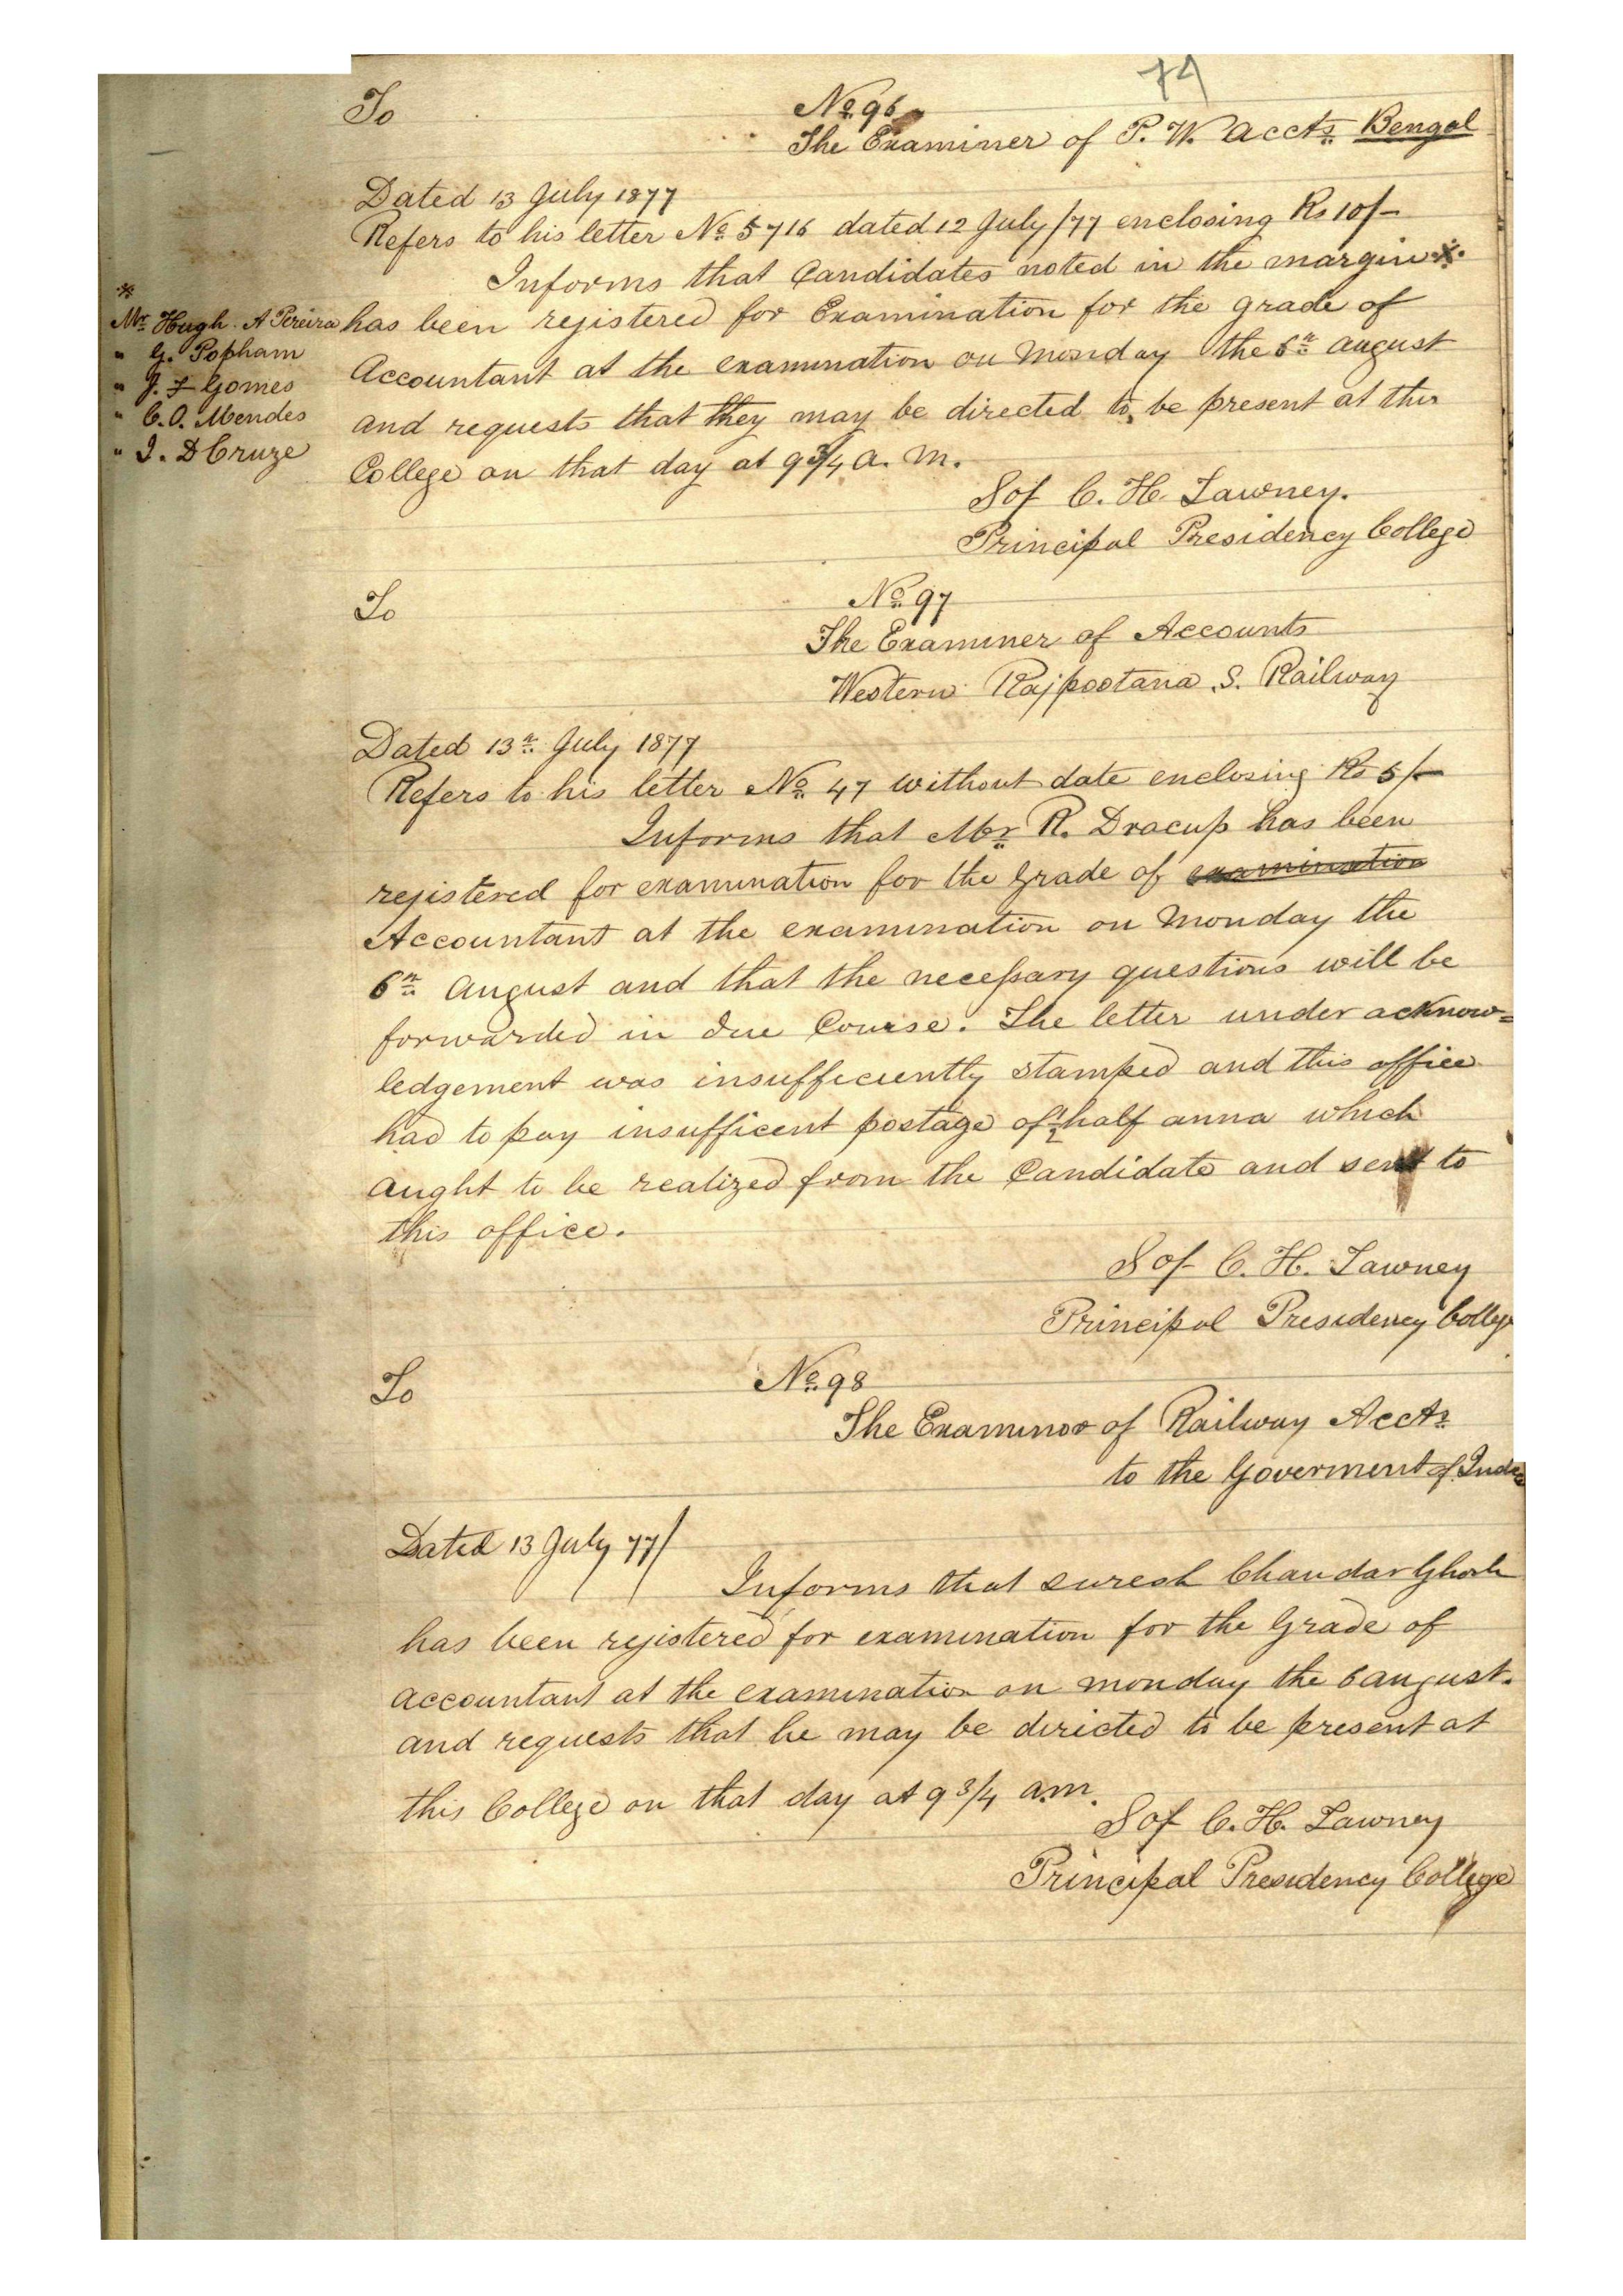 74
To
No. 96
The Examiner of P. W. Accts. Bengal
Dated 13 July 1877
Refers to his letter No. 5716 dated 12 July /77 enclosing Rs 10/-
Informs that Candidates noted in the margin x
*
Mr Hugh. A Pereira
" G. Popham
" J. F Gomes
" C. O. Mendes
" J. D Cruze
has been registered for Examination for the grade of
Accountant at the examination on Monday the 6th August
and requests that they may be directed to be present at this
College on that day at 9 3/4 a. m.
Sof C. H. Tawney.
Principal Presidency College
To
No. 97
The Examiner of Accounts
Western Rajpootana S. Railway
Dated 13th July 1877
Refers to his letter No. 47 without date enclosing Rs 5/-
Informs that Mr R. Dracup has been
registered for examination for the grade of examination
Accountant at the examination on Monday the
6th August and that the necessary questions will be
forwarded in due Course. The letter under acknow=
ledgement was insufficiently stamped and this office
had to pay insufficent postage of 1/2 half anna which
aught to be realized from the Candidate and sent to
this office.
Sof C. H. Tawney
Principal Presidency College
To
No. 98
The Examinor of Railway Accts
to the Goverment of India
Dated 13 July 77/
Informs that suresh Chandar Ghosh
has been registered for examination for the Grade of
accountant at the examination on monday the 6 august.
and requests that he may be diricted to be present at
this College on that day at 9 3/4 a.m.
Sof C. H. Tawney
Principal Presidency College